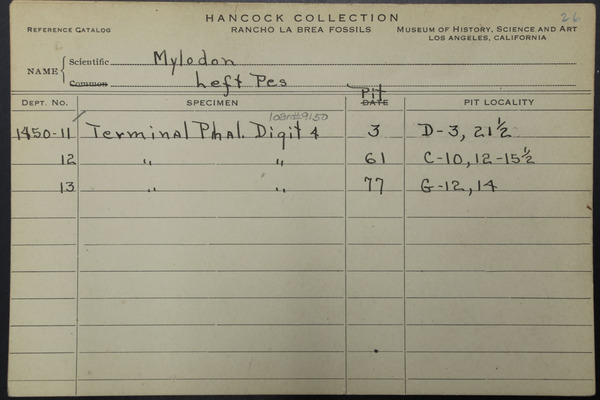 HANCOCK COLLECTION 26
REFERENCE CATALOG RANCHO LA BREA FOSSILS MUSEUM OF HISTORY, SCIENCE AND ART
LOS ANGELES, CALIFORNIA
NAME Scientific Mylodon
Common Left Pes
Pit
DEPT. NO. SPECIMEN DATE PIT LOCALITY
1450-11 Terminal Phal. Digit 4 3 D-3, 21½
12 " " 61 C-10, 12-15½
13 " " 77 G-12, 14